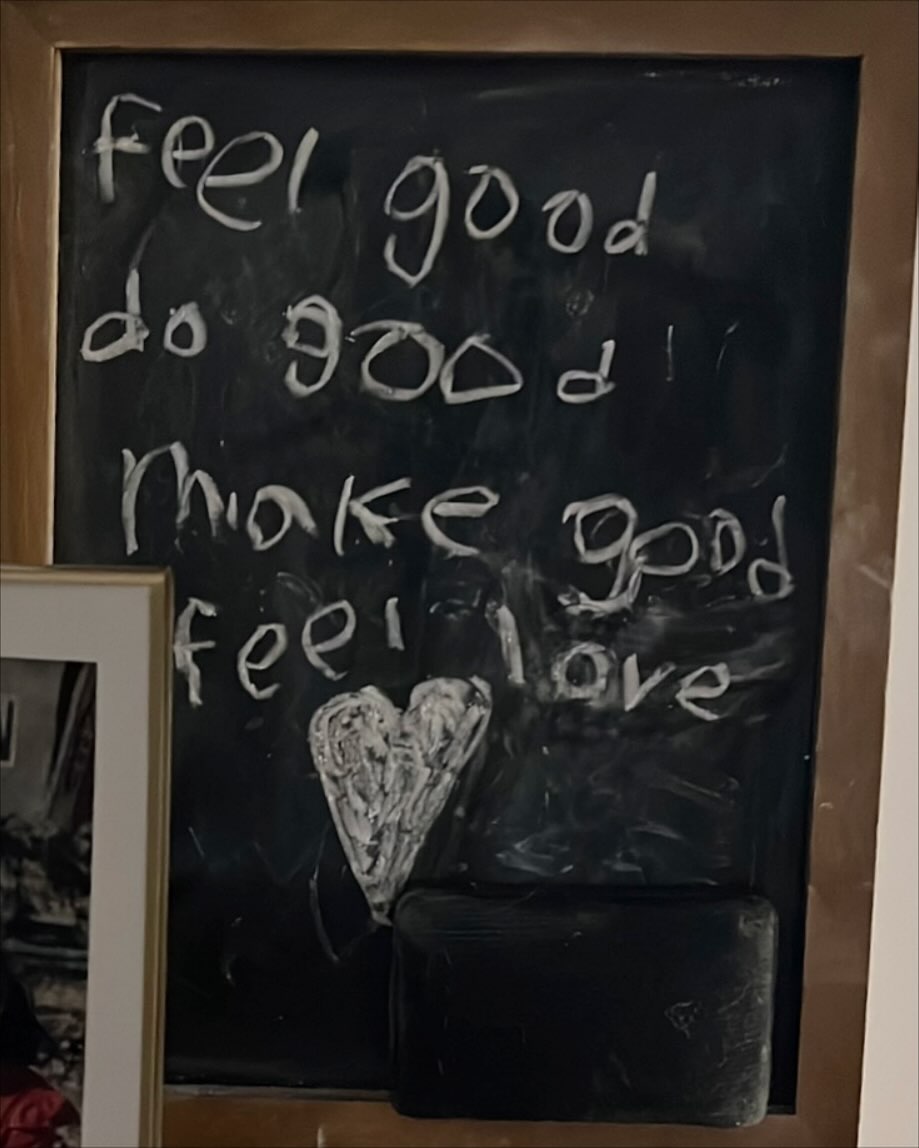 Feel good
do good
Make good
feel love